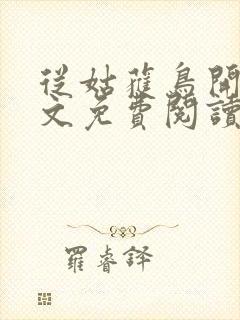 從姑獲鳥開
文免費閱讀
羅睿鐸